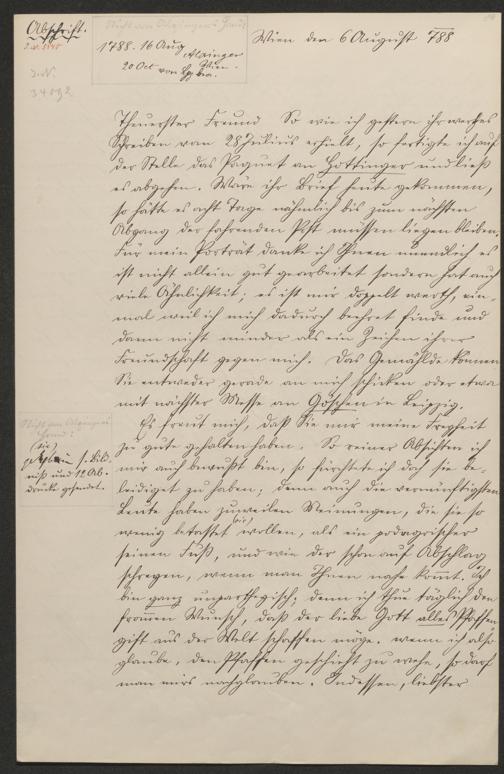 Abschrift.
Nicht von Alxingers Hand
1788. 16 Aug Alxinger
Wien.
20 Oct von
J.N.
34092
Wien den 6 August 788
Theuerster Freund So wie ich gestern ihr werthes
Schreiben vom 28 Julius erhielt, so fertigte ich auf
der Stelle das Paquet an Hottinger und ließ
es abgehen. Wäre ihr Brief heute gekommen,
so hätte es acht Tage nähmlich bis zum nächsten
Abgang der fahrenden Post müssen liegen bleiben.
Für mein Porträt danke ich Ihnen unendlich es
ist nicht allein gut gearbeitet sondern hat auch
viele Ähnlichkeit; es ist mir doppelt werth, ein-
mal weil ich mich dadurch beehret finde und
dann nicht minder als ein Zeichen ihrer
Freundschaft gegen mich. Das Gemählde können
Sie entweder gerade an mich schicken oder etwa
mit nächster Messe an Göschen in Leipzig.
Es freut mich, daß Sie mir meine Freyheit
zu gute gehalten haben. So reiner Absichten ich
mir auch bewußt bin, so fürchtete ich doch sie be-
leidiget zu haben; denn auch die vernünftigsten
Leute haben zuweilen Meinungen, die sie so
wenig betastet wollen, als ein podagrischer
(sic)
seinen Fuß, und wie der schon auf Abschlag
schreyen, wenn man Ihnen nahe kommt. Ich
bin ganz unparthegisch, denn ich thue täglich den
frommen Wunsch, daß der liebe Gott alles Pfaffen
gift aus der Welt schaffen möge. wenn ich also
glaube, den Pfaffen geschieht zu wehe, so darf
man mirs nachglauben. Indessen, liebster
Nicht von Alxingers
Hand:
(sic)
s. Bild-
niß und 12 Ab-
drücke gesendet.